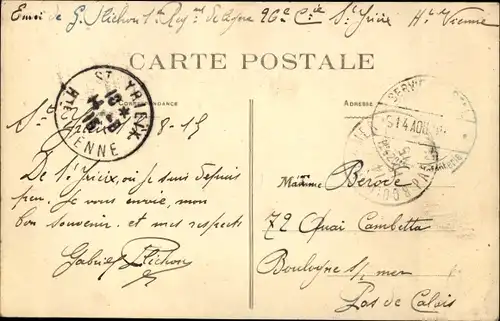 Envoi de G. Plichon 1er Reg nt de ligne 26e Cie St Yrieix Hte Vienne
CARTE POSTALE
CORRESPONDANCE
ADRESSE
ST YRIEIX
HTE VIENNE
SERVICE
14 AOU
St Yrieix 8-15
De St Yrieix, où je suis depuis
peu, je vous envoie, mon
bon souvenir et mes respects
Gabriel Plichon
Madame Bérode
72 Quai Gambetta
Boulogne s/ mer
Pas de Calais